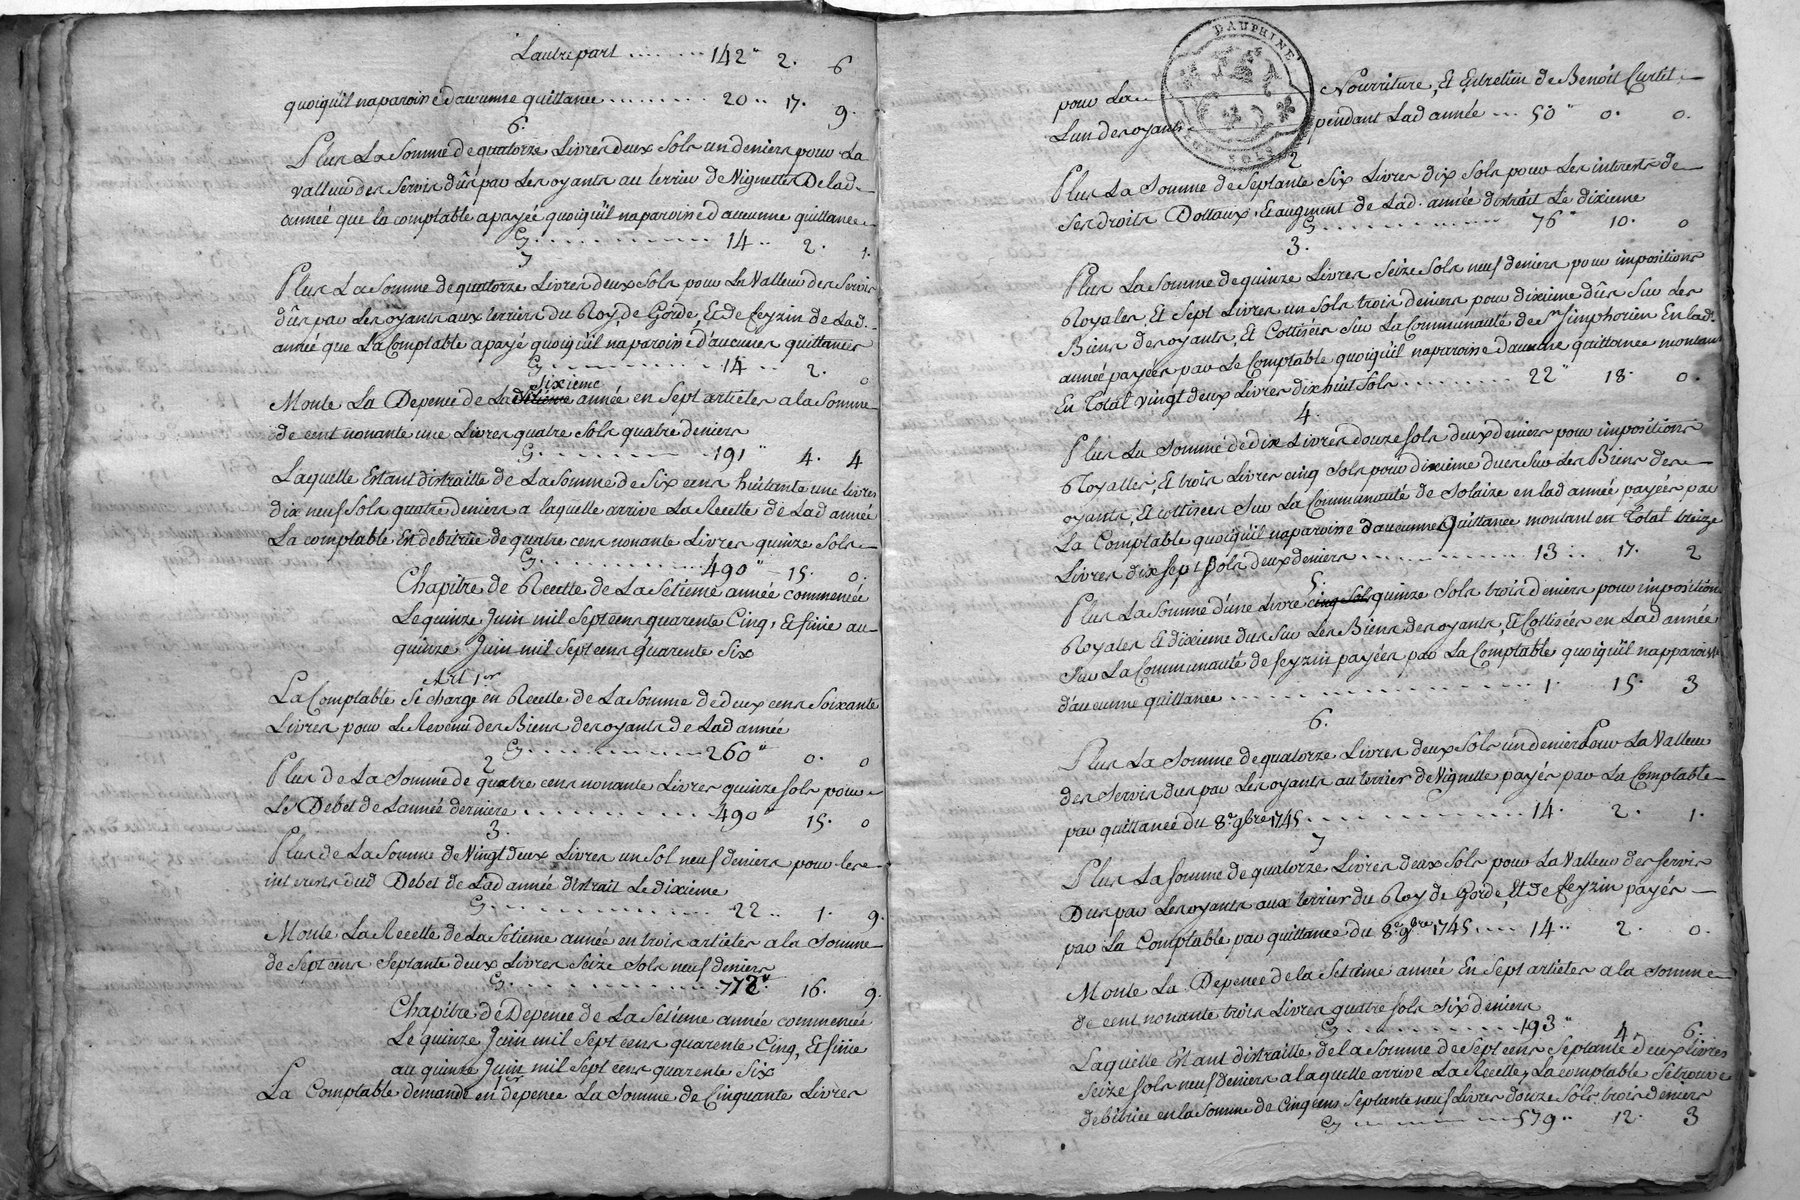 Lautre part ........ 142" 2. 6
quoiquil naparoisse d'aucunne quittance ........ 20.. 17. 9.
6.
Plus La somme de quatorze Livres deux sols un deniers pour La
valleur des servis dûs par Les oyants au terrier de Vignettes De lad.
année que la comptable a payée quoiqu'il naparoisse d'aucunne quittance
Cy ............ 14.. 2. 1.
7
Plus La Somme de quatorze Livres deux sols pour La Valleur des Servis
dûs par Les oyants aux terriers du Roy, de Gorde, Et de feyzin de Lad.
année que La Comptable a payé quoiqu'il naparoisse d'aucunes quittances
Cy ............ 14.. 2. 0
sixieme
Monte La Depence de La Setieme année en Sept articles a la Somme
de cent nonante une Livres quatre sols quatre deniers
Cy ............ 191" 4. 4
Laquelle Estant distraitte de La Somme de Six cens huittante une livres
dix neuf Sols quatre deniers a laquelle arrive La Recette de Lad année
La comptable En debitrice de quatre cens nonante Livres quinze Sols
Cy ............ 490" 15. 0.
Chapitre de Recette de La Setieme année commencée
Le quinze Juin mil Sept cens quarente Cinq, Et finie au
quinze Juin mil Sept cens quarente Six
Art 1er
La Comptable Se charge en Recette de La Somme de deux cens Soixante
Livres pour Le Revenu des Biens des oyants de Lad année
Cy ............ 260" 0. 0
2
Plus de La Somme de quatre cens nonante Livres quinze sols pour
Le Debet de Lannée derniere ............ 490" 15. 0
3.
Plus de La Somme de Vingt deux Livres un Sol neuf deniers pour les
interests dud Debet de Lad année distrait Le dixieme
Cy ............ 22.. 1. 9.
Monte La Recette de La Setieme année en trois articles a la Somme
de Sept cens Septante deux Livres Seize Sols neuf deniers
Cy ............ 772" 16. 9.
Chapitre de Depence de La Setieme année commencée
Le quinze Juin mil Sept cens quarente Cinq, Et finie
au quinze Juin mil Sept cens quarente Six
1er
La Comptable demande en depence La Somme de Cinquante Livres
DAUPHINE
DEUX SOLS
pour La Nourriture, Et Entretien de Benoit Curtet
Lun des oyants pendant Lad année ... 50" 0. 0.
2
Plus La Somme de Septante Six Livres dix Sols pour Les interests de
Ses droits Dottaux, Et augment de Lad. année distrait Le dixieme
Cy ............ 76" 10. 0
3.
Plus La Somme de quinze Livres Seize Sols neuf deniers pour impositions
Royales, Et Sept Livres un Sols trois deniers pour dixieme dûs Sur Les
Biens des oyants, Et Cottisées Sur La Communauté de St Simphorien En lad.
année payées par Le Comptable quoiqu'il naparoisse d'aucune quittance montant
En Total vingt deux Livres dix huit Sols ............ 22" 18. 0.
4.
Plus La Somme de dix Livres douze sols deux deniers pour impositions
Royalles, Et trois Livres cinq Sols pour dixieme dues Sur Les Biens des
oyants, Et cottisées Sur La Communauté de Solaize en lad année payées par
La Comptable quoiqu'il naparoisse d'aucunne Quittance montant en Total treize
Livres dix sept Sols deux deniers ............ 13.. 17. 2
5.
Plus La Somme d'une Livre cinq Sols quinze Sols trois deniers pour imposition
Royales Et dixieme dus Sur Les Biens des oyants, Et Cottisées en Lad année
Sur La Communauté de feyzin payées par La Comptable quoiqu'il napparoisse
d'aucunne quittance ............ 1. 15. 3
6.
Plus La Somme de quatorze Livres deux Sols un denier Pour La Valleur
des Servis dus par Les oyants au terrier de Vignette payés par La Comptable
par quittance du 8e 9bre 1745 ............ 14. 2. 1.
7
Plus La somme de quatorze Livres deux sols pour La Valleur des servis
Dus par Les oyants aux terriers du Roy de Gorde, Et de feyzin payés
par La Comptable par quittance du 8e 9bre 1745 .... 14.. 2. 0.
Monte La Depence de la Setieme année En Sept articles a la Somme
de cent nonante trois Livres quatre sols six deniers
Cy ............ 193" 4. 6.
Laquelle Estant distraitte de la Somme de Sept cens Septante deux Livres
Seize sols neuf deniers a laquelle arrive La Recette, La comptable Se trouve
debitrice en la Somme de Cinq cens Septante neuf Livres douze Sols trois deniers
Cy ............ 579.. 12. 3